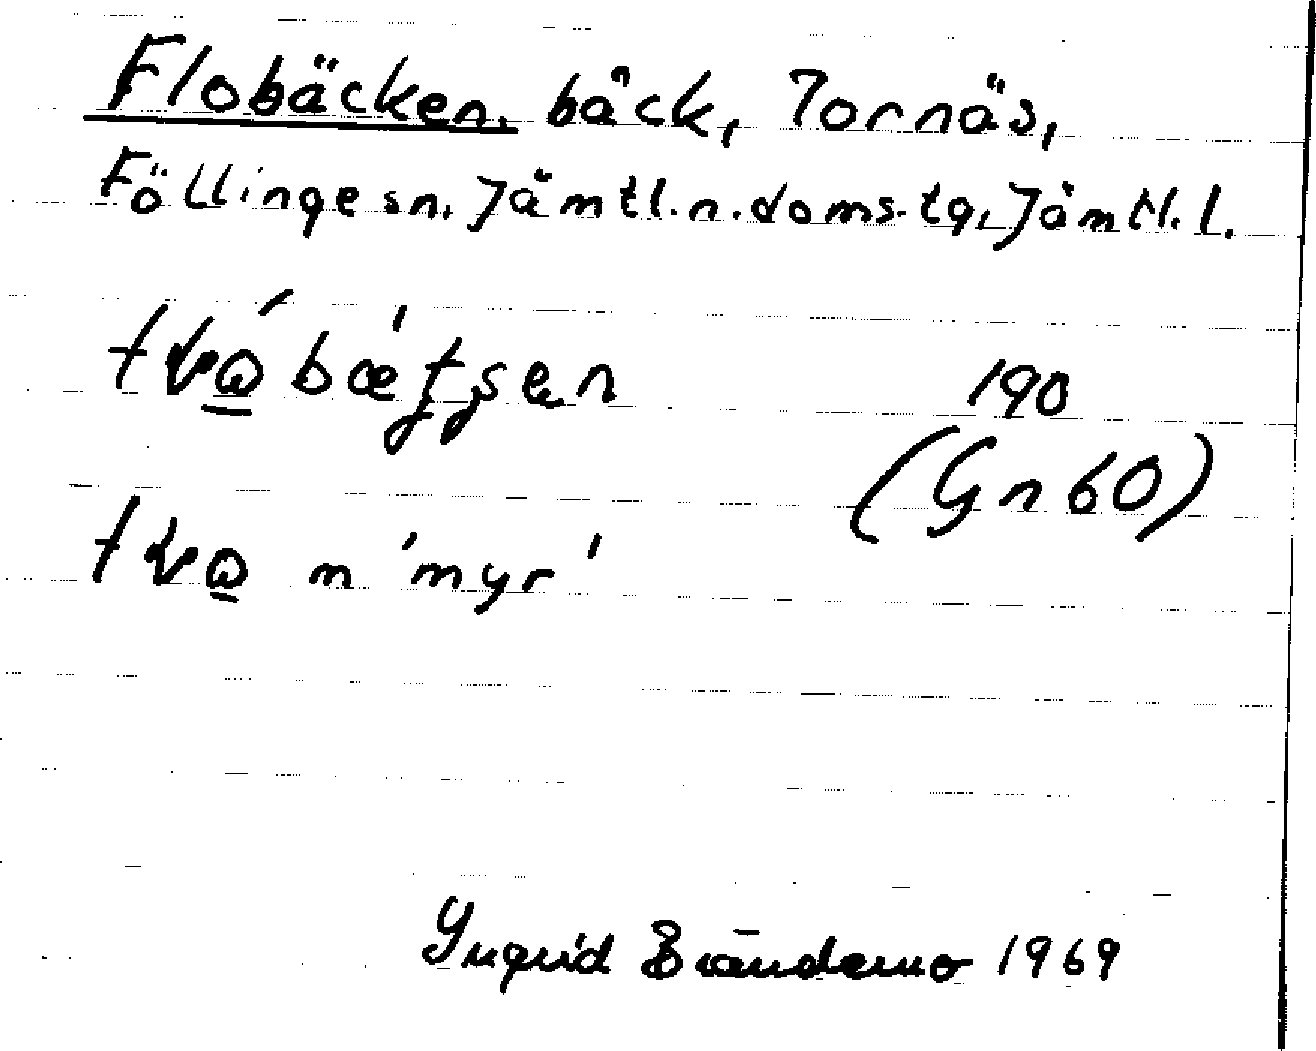 Flobäcken, bäck, Tornäs,
Föllinge sn. Jämtl. n. doms. tg, Jämtl. l.
190
(Gn 60)
m 'myr'
Ingrid Brändemo 1969